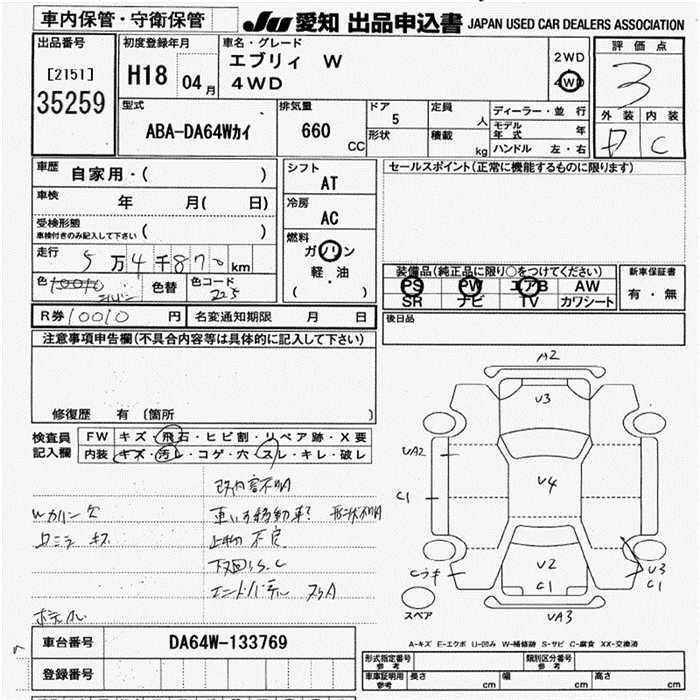 車内保管・守衛保管
JU 愛知 出品申込書 JAPAN USED CAR DEALERS ASSOCIATION
出品番号
[2151]
35259
初度登録年月
H18 04月
車名・グレード
エブリィ W
4WD
2WD
4WD
評価点
3
外装 内装
D C
型式
ABA-DA64Wカイ
排気量
660 CC
ドア
5
形状
定員
人
積載
kg
ディーラー・並行
モデル年式 年
ハンドル 左・右
車歴
自家用・( )
車検
年 月( 日)
受検形態
車検付きのみ記入して下さい ( )
走行
5万4千870km
色 シルバー 色替 色コード
225
シフト
AT
冷房
AC
燃料
ガソリン
軽・油
( )
セールスポイント(正常に機能するものに限ります)
装備品(純正品に限り○をつけてください)
PS PW エアB AW
SR ナビ TV カワシート
新車保証書
有・無
R券 10010 円 名変通知期限 月 日
後日品
注意事項申告欄(不具合内容等は具体的に記入して下さい)
修復歴 有 〔箇所 〕
検査員記入欄
FW キズ・飛石・ヒビ割・リペア跡・X要
内装 キズ・汚レ・コゲ・穴・スレ・キレ・破レ
Wカリン欠
車いす移動車? 形状不明
上物不良
下回りS.C
エンドパネル
A2
V3
UA2
C1
V4
V2
C1
Cウキ
U3
C1
UA3
スペア
A-キズ E-エクボ U-凹み W-補修跡 S-サビ C-腐食 XX-交換済
車台番号 DA64W-133769
登録番号
形式指定番号 参考 類別区分番号 参考
車庫証明用 参考 長さ cm 幅 cm 高さ cm